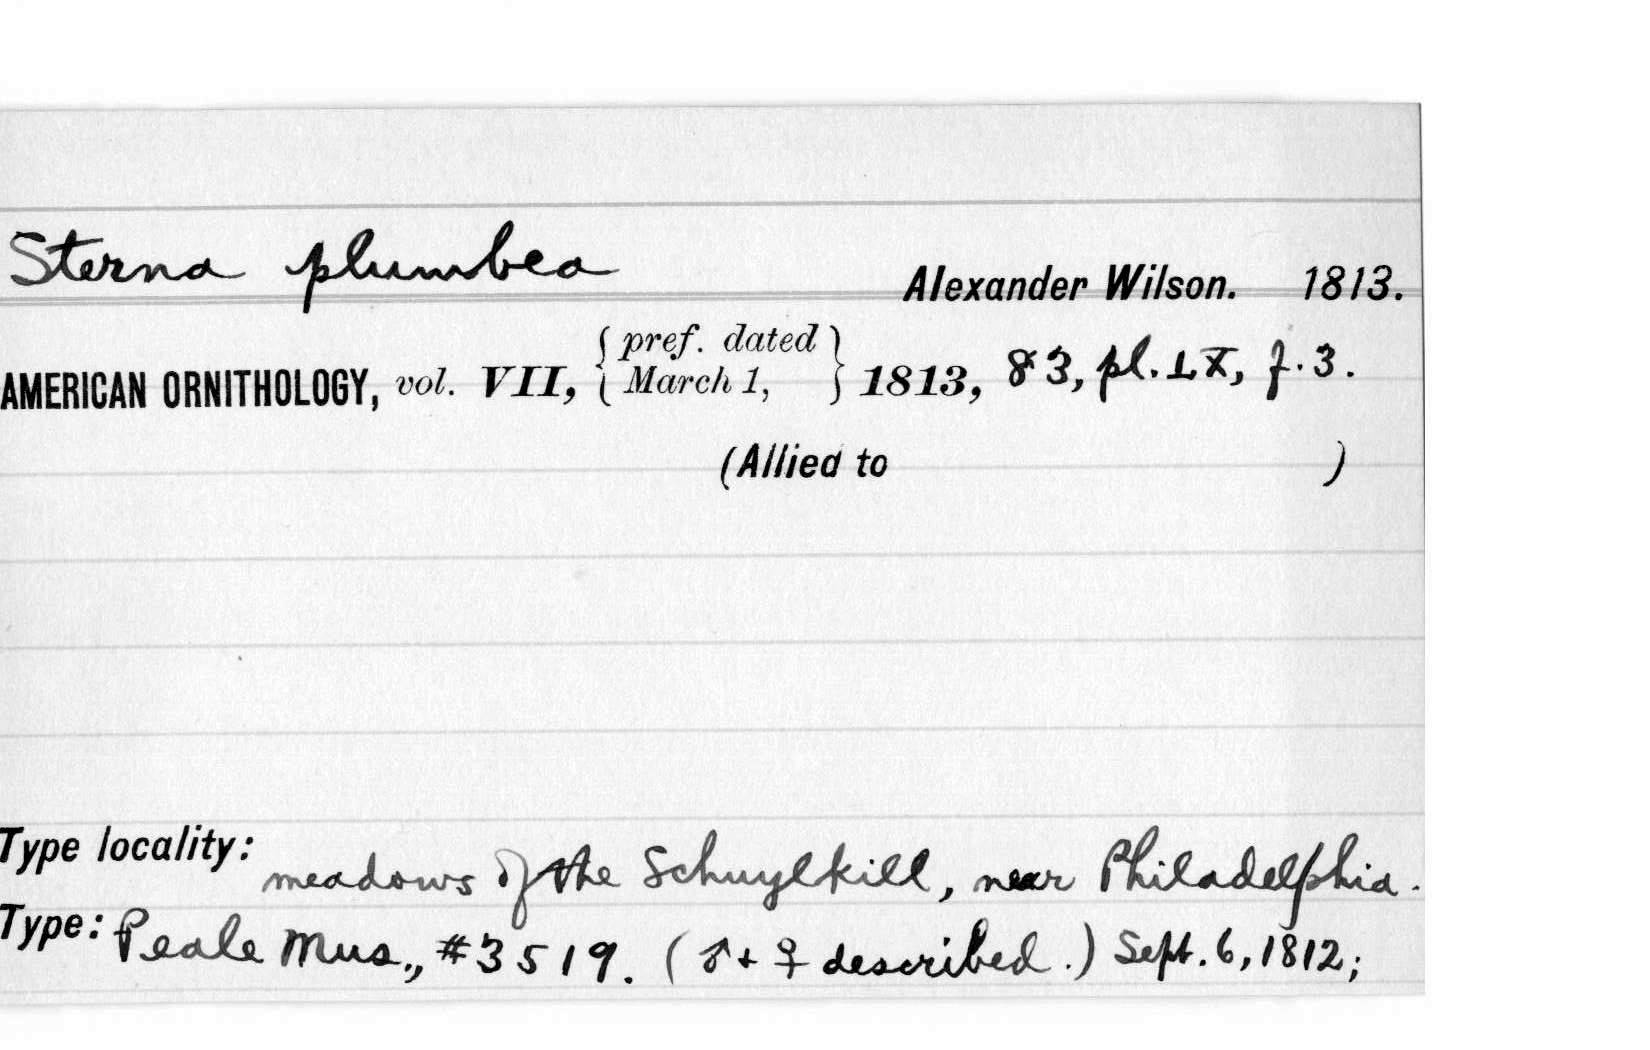 Sterna plumbea Alexander Wilson. 1813.
AMERICAN ORNITHOLOGY, vol. VII, { pref. dated March 1, } 1813, 83, pl. LX, f. 3.
(Allied to )
Type locality: meadows of the Schuylkill, near Philadelphia.
Type: Peale Mus., #3519. (♂ + ♀ described.) Sept. 6, 1812;